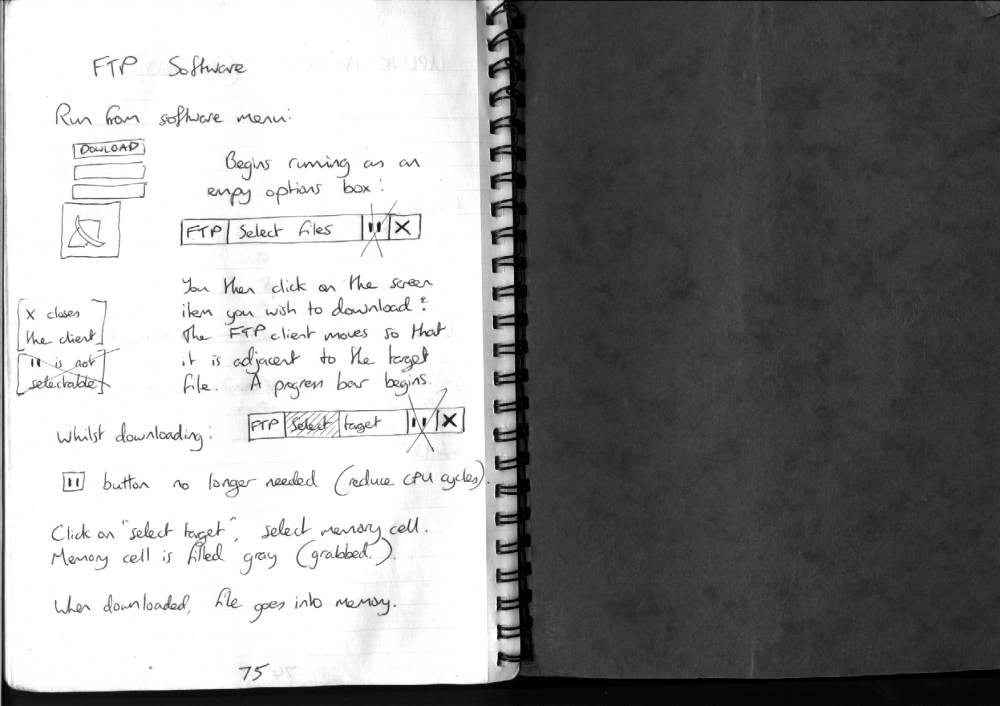 FTP Software
Run from software menu:
DOWLOAD
Begins running as an
empy options box:
FTP Select files II X
You then click on the screen
item you wish to download:
The FTP client moves so that
it is adjacent to the target
file. A progress bar begins.
X closes
the client
II is not
selectable
Whilst downloading:
FTP Select target II X
II button no longer needed (reduce CPU cycles).
Click on "select target", select memory cell.
Memory cell is filled gray (grabbed.).
When downloaded, file goes into memory.
75